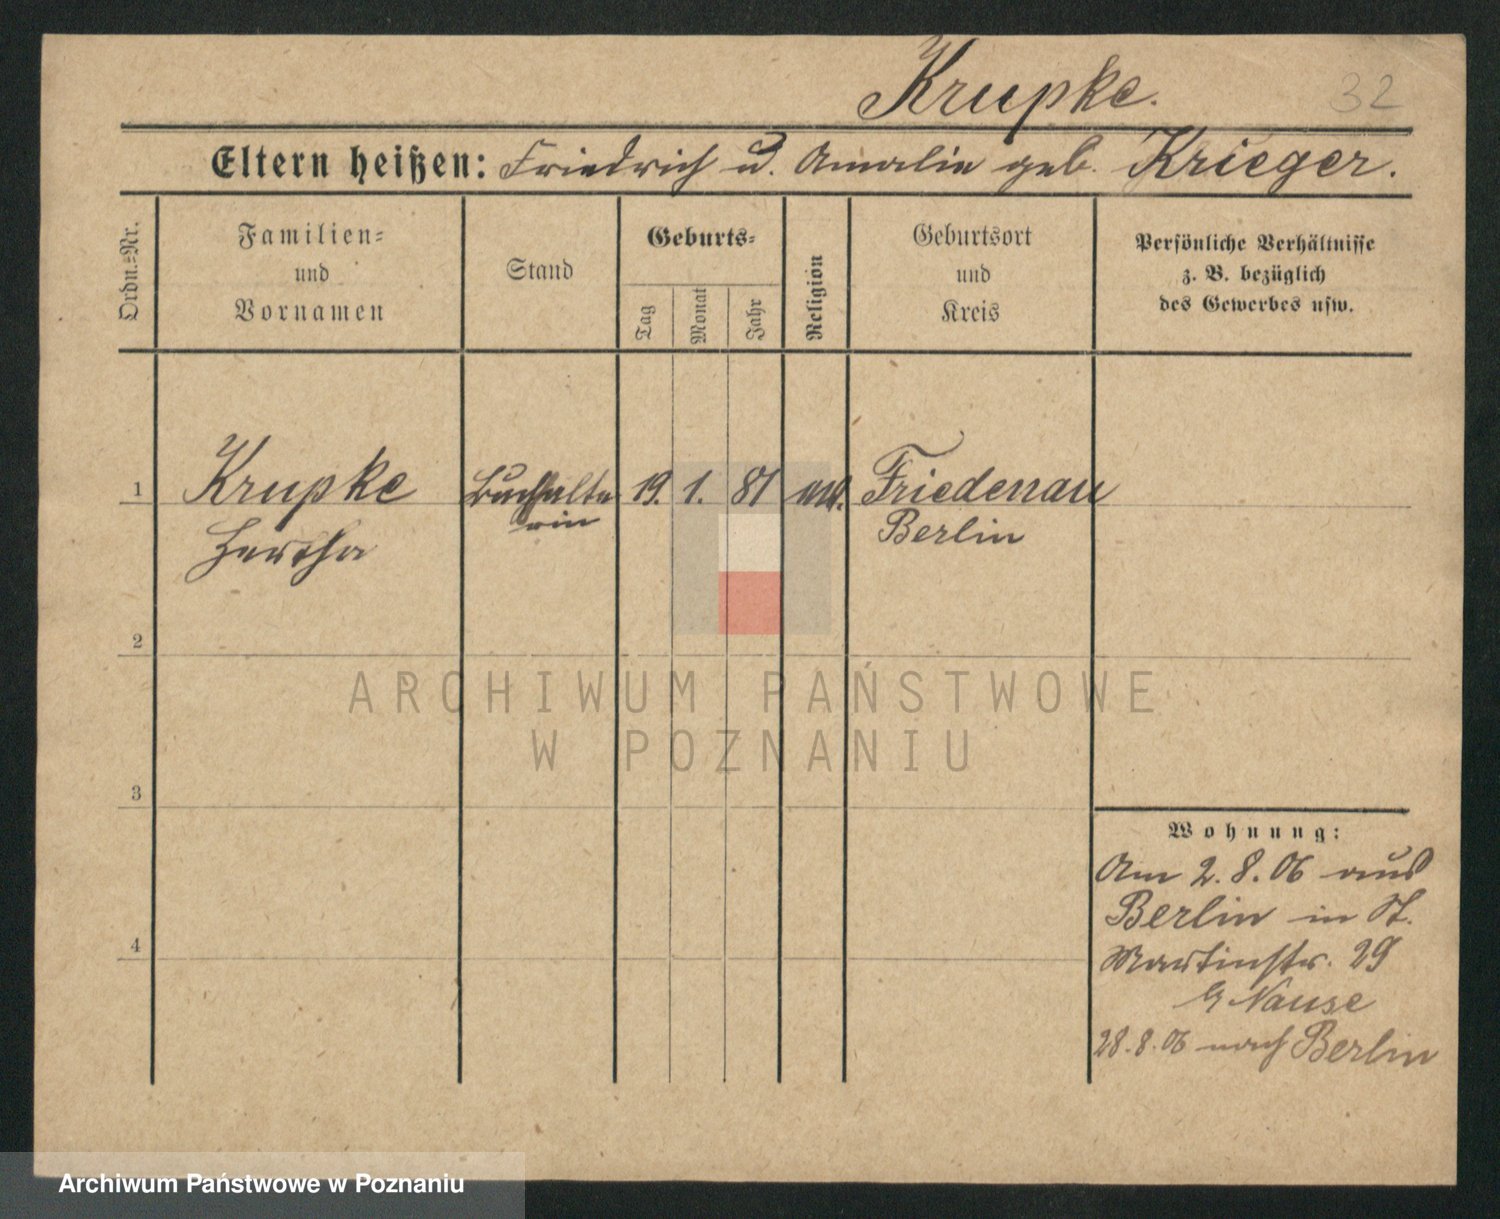 Krupke.
32
Eltern heißen: Friedrich u. Amalie geb. Krieger.
Ordn.-Nr.
Familien-
und
Vornamen
Stand
Geburts-
Tag
Monat
Jahr
Religion
Geburtsort
und
Kreis
Persönliche Verhältnisse
z. B. bezüglich
des Gewerbes usw.
1 Krupke Buchhalte 19. 1. 81 Friedenau
Hertha rin Berlin
2
3
4
Wohnung:
Am 2.8.06 aus
Berlin in St.
Martinstr. 29
Nause
28.8.06 nach Berlin
ARCHIWUM PAŃSTWOWE
W POZNANIU
Archiwum Państwowe w Poznaniu